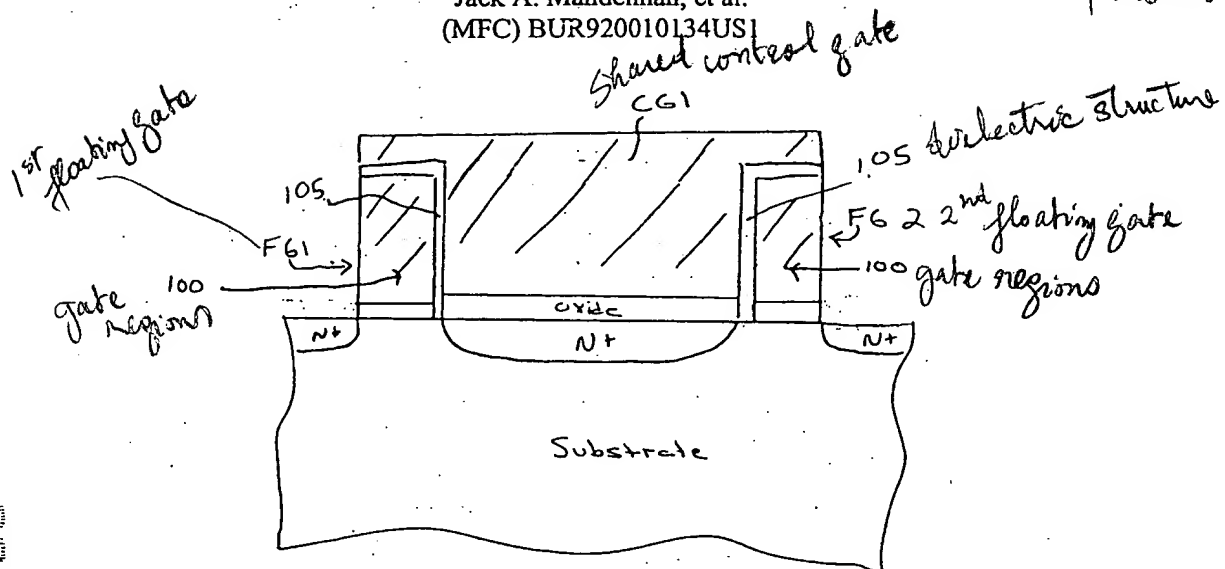 Jack A. Mandelman, et al.
(MFC) BUR920010134US1
Shared control gate
CG1
1st floating gate
105
105 dielectric structure
FG1
FG 2 2nd floating gate
gate regions 100
100 gate regions
oxide
N+
N+
N+
Substrate